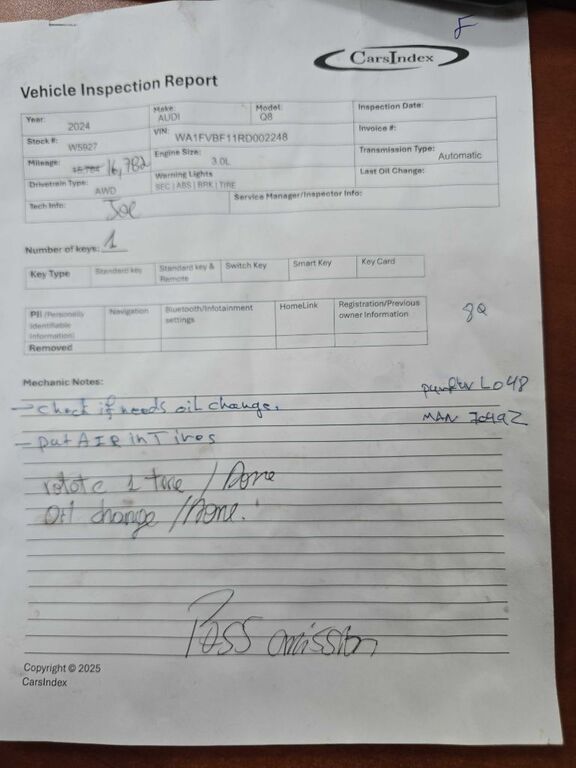 F
CarsIndex
Vehicle Inspection Report
Year: 2024 Make: AUDI Model: Q8 Inspection Date:
Stock #: W5927 VIN: WA1FVBF11RD002248 Invoice #:
Mileage: 16,782 Engine Size: 3.0L Transmission Type: Automatic
Drivetrain Type: AWD Warning Lights Last Oil Change:
SEC | ABS | BRK | TIRE
Tech Info: Joe Service Manager/Inspector Info:
Number of keys: 1
Key Type Standard key Standard key & Remote Switch Key Smart Key Key Card
PII (Personally Identifiable Information) Navigation Bluetooth/Infotainment settings HomeLink Registration/Previous owner Information
Removed
Mechanic Notes:
→ check if needs oil change.
– put AIR in Tires
rotate 1 tire / Done
Oil change / Done.
Pass omission
Copyright © 2025
CarsIndex